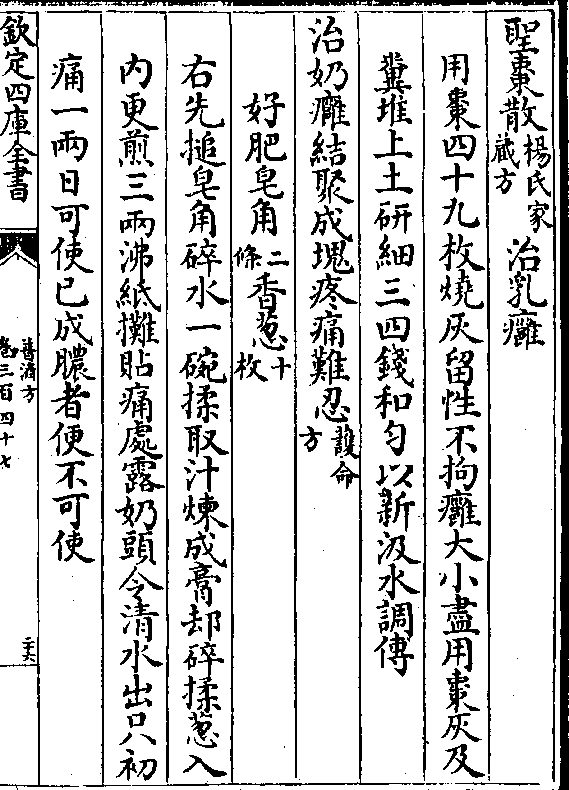 聖棗散楊氏家藏方治乳癰
用棗四十九枚燒灰留性不拘癰大小盡用棗灰及
糞堆上土研細三四錢和勻以新汲水調傅
治奶癰結聚成塊疼痛難忍護命方
好肥皂角二條香葱十枚
右先搥皂角碎水一碗揉取汁煉成膏却碎揉葱入
內更煎三兩沸紙攤貼痛處露奶頭令清水出只初
痛一兩日可使已成膿者便不可使
欽定四庫全書
普濟方
卷三百四十七
二六